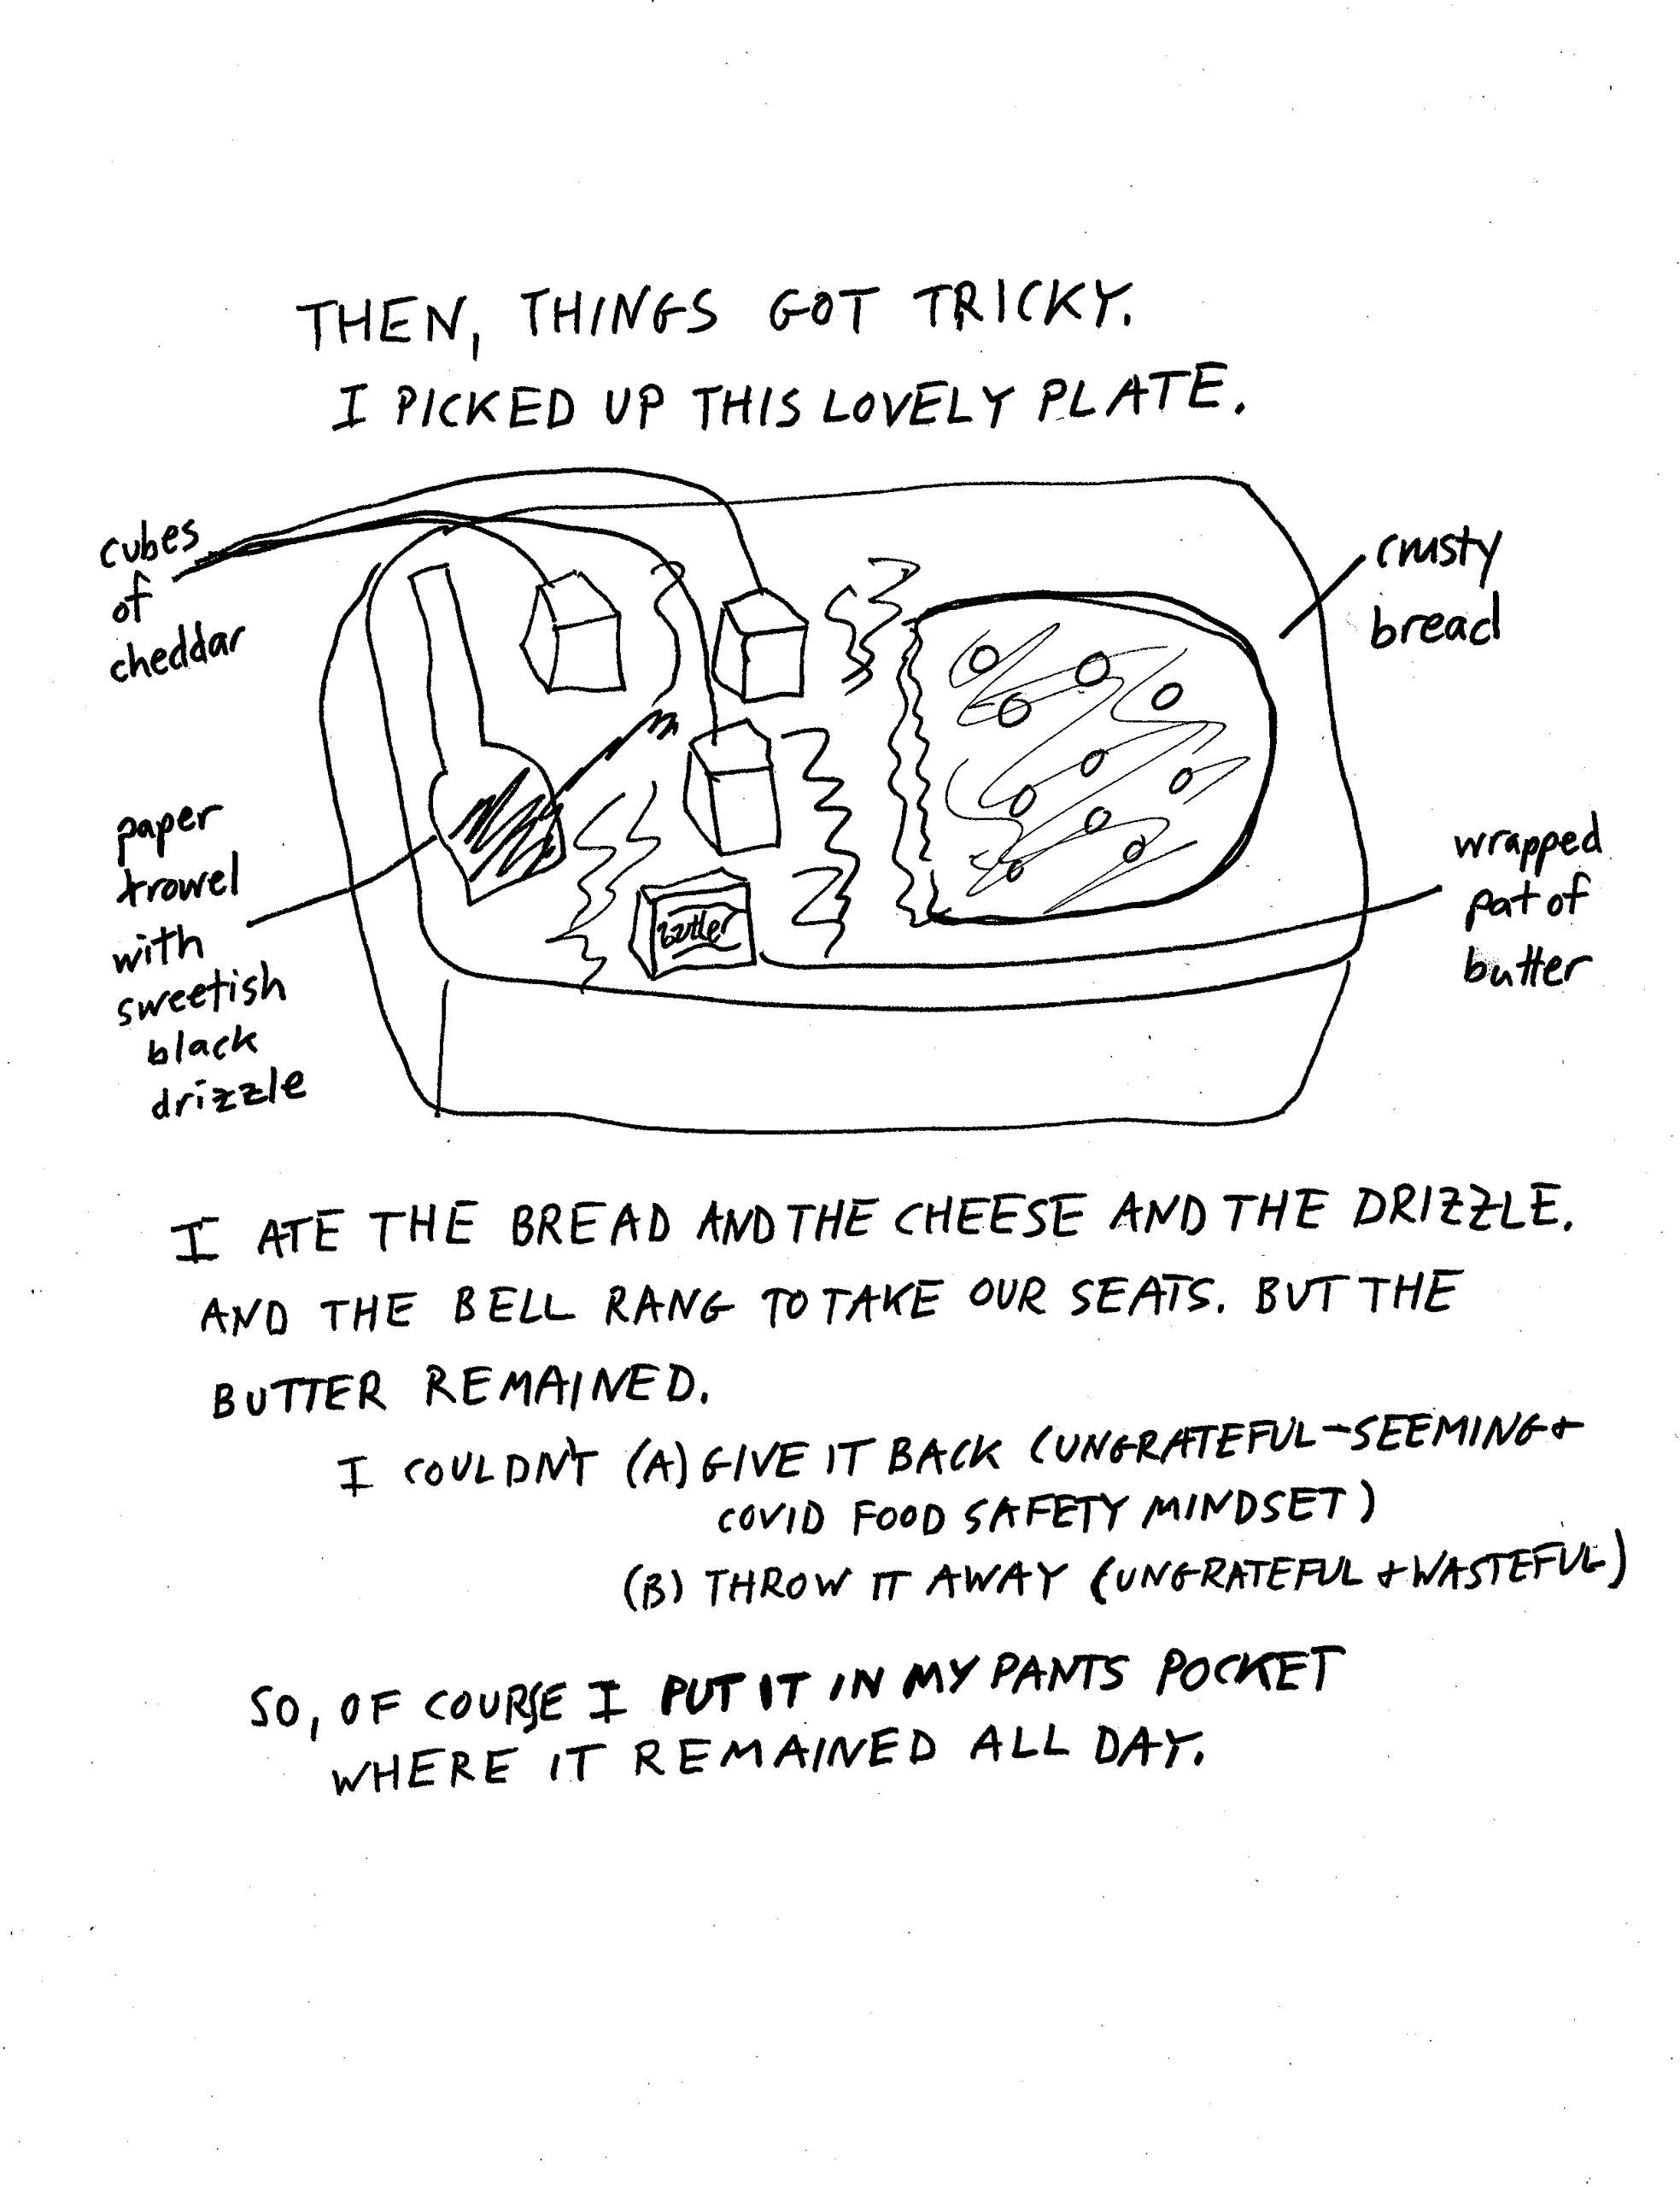 THEN, THINGS GOT TRICKY.
I PICKED UP THIS LOVELY PLATE.
cubes
of
cheddar
crusty
bread
paper
trowel
with
sweetish
black
drizzle
butter
wrapped
pat of
butter
I ATE THE BREAD AND THE CHEESE AND THE DRIZZLE.
AND THE BELL RANG TO TAKE OUR SEATS. BUT THE
BUTTER REMAINED.
I COULDN'T (A) GIVE IT BACK (UNGRATEFUL-SEEMING &
COVID FOOD SAFETY MINDSET)
(B) THROW IT AWAY (UNGRATEFUL & WASTEFUL)
SO, OF COURSE I PUT IT IN MY PANTS POCKET
WHERE IT REMAINED ALL DAY.